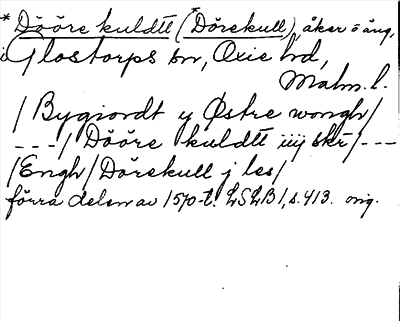 *Dööre kuldtt (*Dörekull), åker o äng,
i Glostorps sn, Oxie hd,
Malm. l.
/Bygiordt y Østre wongh/
---/Dööre kuldtt iiij skr/---
/Engh/Dörekull j les/
förra delen av 1570-t. LSLB1, s. 413. orig.